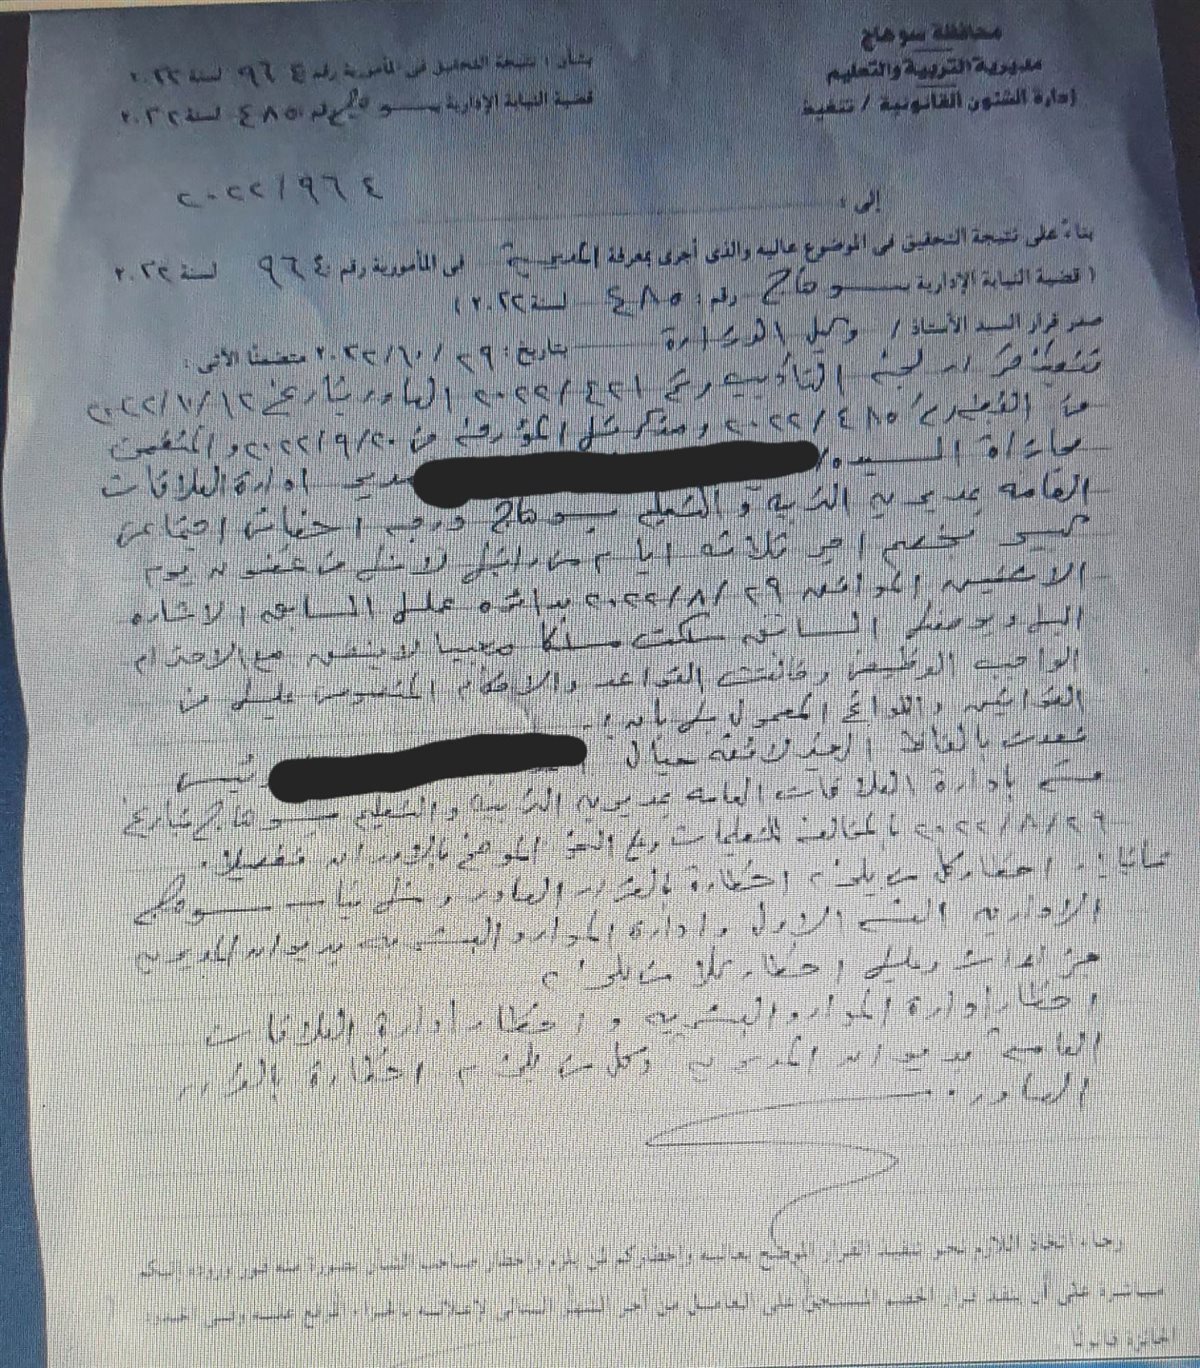 محافظة سوهاج
مديرية التربية والتعليم
إدارة الشئون القانونية / تنفيذ
بشأن / نتيجة التحقيق في المأمورية رقم ٩٦٤ لسنة ٢٠٢٢
قضية النيابة الإدارية بسوهاج رقم ٤٨٥ لسنة ٢٠٢٢
٢٠٢٢/٩٦٤
إلى /
بناءً على نتيجة التحقيق في الموضوع عاليه والذي أجرى بمعرفة المديرية في المأمورية رقم ٩٦٤ لسنة ٢٠٢٢
( قضية النيابة الإدارية بسوهاج رقم ٤٨٥ لسنة ٢٠٢٢ )
صدر قرار السيد الأستاذ / وكيل الوزارة بتاريخ : ٢٩ / ١٠ / ٢٠٢٢ متضمناً الآتي :
تنفيذ قرار التأديب رقم ٤٢١ / ٢٠٢٢ الصادر بتاريخ ١٢ / ١٠ / ٢٠٢٢
من القضية ٤٨٥ / ٢٠٢٢ ومذكرتها المؤرخة في ٢٠ / ٩ / ٢٠٢٢ والمتضمن
مجازاة السيدة / مدير ادارة العلاقات
العامه بمديرية التربية والتعليم بسوهاج ودرجه اخصائى اجتماعى
كبير بخصم اجر ثلاثه ايام من راتبها لانها في غضون يوم
الاثنين الموافق ٢٩ / ٨ / ٢٠٢٢ بدائرة عملها السابق الاشاره
اليه وبوصفها السابق سلكت مسلكا معيبا لا يتفق مع الاحترام
الواجب الوظيفة وخالفت القواعد والاحكام المنصوص عليها في
القوانين واللوائح المعمول بها بان :
تعدت بالفاظ الغير لائقه حيال رئيس
قسم بإدارة العلاقات العامه بمديرية التربية والتعليم بسوهاج بتاريخ
٢٩ / ٨ / ٢٠٢٢ بالمخالفة للتعليمات وعلى النحو الموضح بالاوراق تفصيلا .
ثانيا : اخطار كل من يلزم اخطارة بالقرار الصادر ونيابة سوهاج
الادارية القسم الاول وادارة الموارد البشرية بديوان المديرية
وعليه اخطار كلا من يلزم
اخطار ادارة الموارد البشرية واخطار ادارة العلاقات
العامة بديوان المديرية وكل من يلزم اخطارة بالقرار
الصادر .
رجاء اتخاذ اللازم نحو تنفيذ القرار الموضح بعاليه وإخطار صاحب الشأن بصورة منه فور وروده إليكم
مباشرة على أن ينفذ قرار الخصم على العامل من أجر الشهر التالي